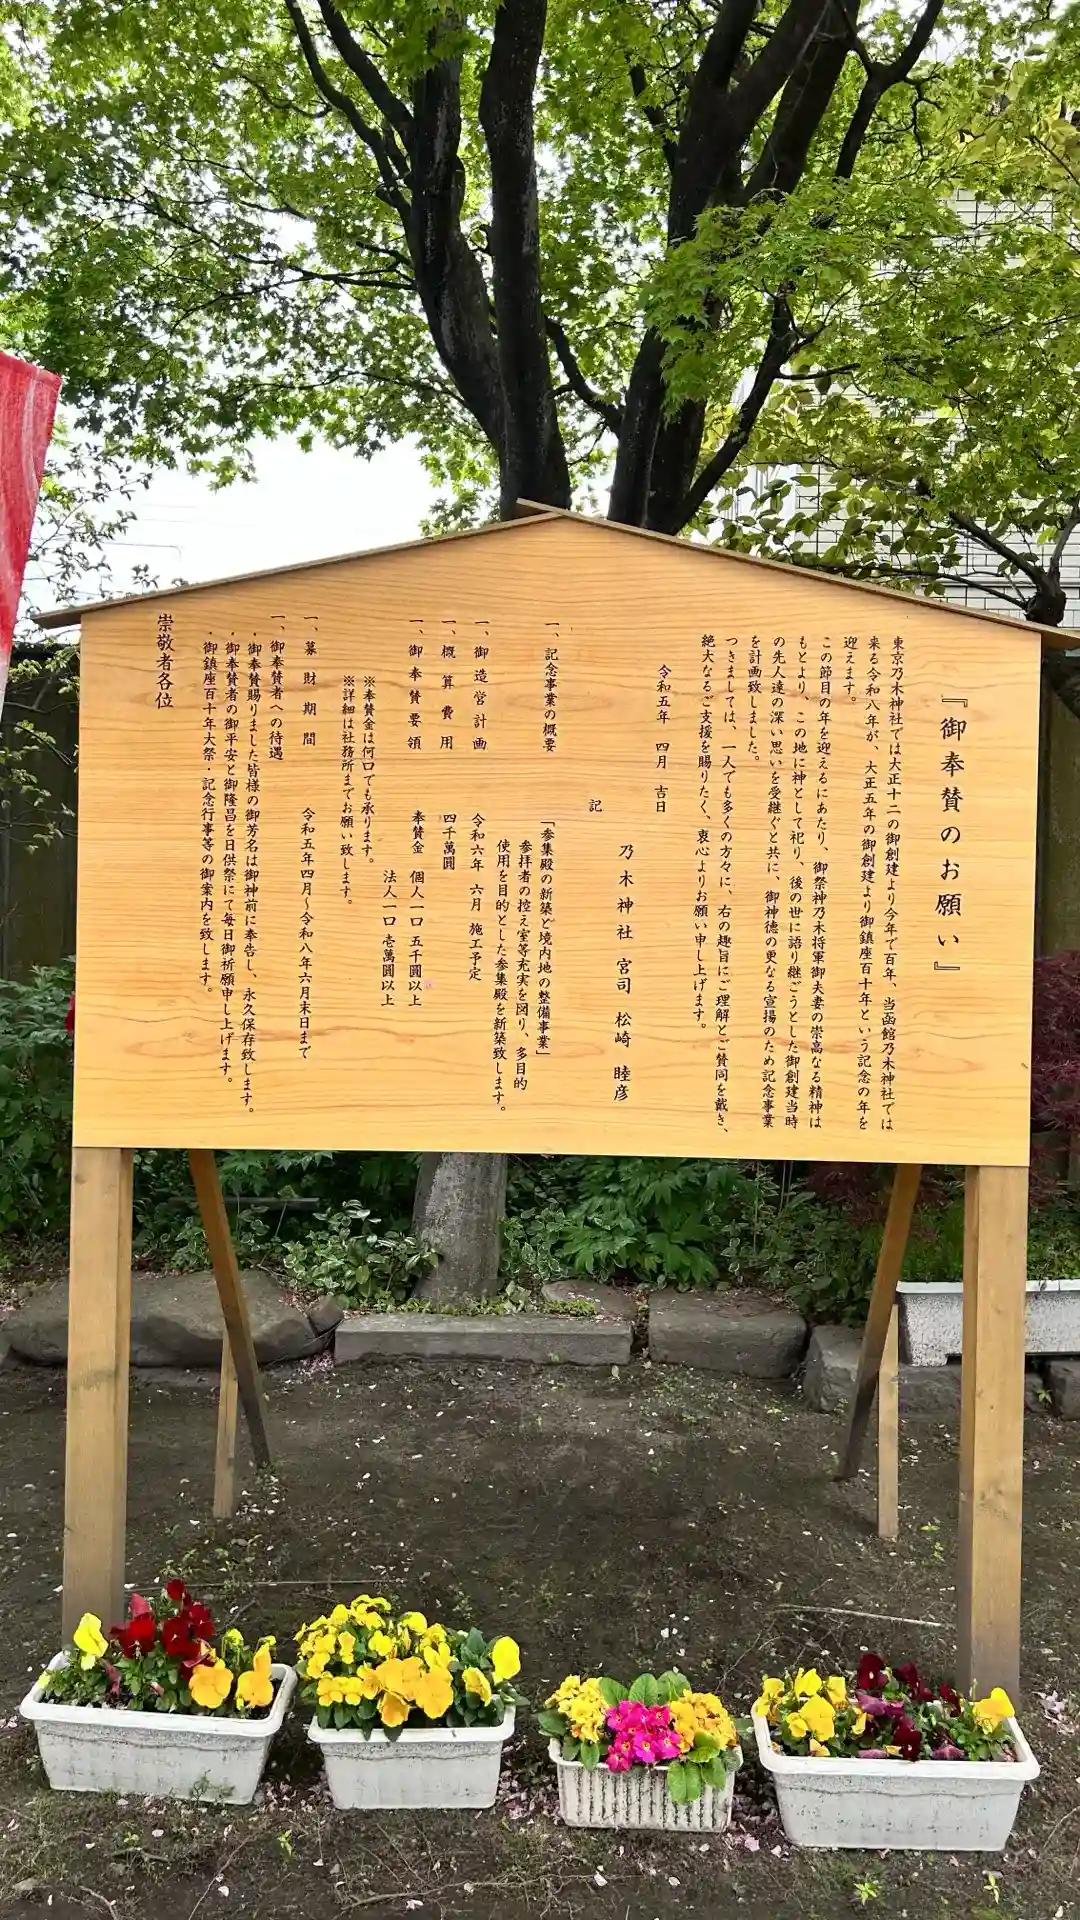 『御奉賛のお願い』
東京乃木神社では大正十二の御創建より今年で百年、当函館乃木神社では
来る令和八年が、大正五年の御創建より御鎮座百十年という記念の年を
迎えます。
この節目の年を迎えるにあたり、御祭神乃木将軍御夫妻の崇高なる精神は
もとより、この地に神として祀り、後の世に語り継ごうとした御創建当時
の先人達の深い思いを受継ぐと共に、御神徳の更なる宣揚のため記念事業
を計画致しました。
つきましては、一人でも多くの方々に、右の趣旨にご理解とご賛同を戴き、
絶大なるご支援を賜りたく、衷心よりお願い申し上げます。
令和五年 四月 吉日
乃木神社 宮司 松崎 睦彦
記
一、記念事業の概要 「参集殿の新築と境内地の整備事業」
参拝者の控え室等充実を図り、多目的
使用を目的とした参集殿を新築致します。
一、御造営計画 令和六年 六月 施工予定
一、概算費用 四千萬圓
一、御奉賛要領 奉賛金 個人一口 五千圓以上
法人一口 壱萬圓以上
※奉賛金は何口でも承ります。
※詳細は社務所までお願い致します。
一、募財期間 令和五年四月～令和八年六月末日まで
一、御奉賛者への待遇
・御奉賛賜りました皆様の御芳名は御神前に奉告し、永久保存致します。
・御奉賛者の御平安と御隆昌を日供祭にて毎日御祈願申し上げます。
・御鎮座百十年大祭・記念行事等の御案内を致します。
崇敬者各位